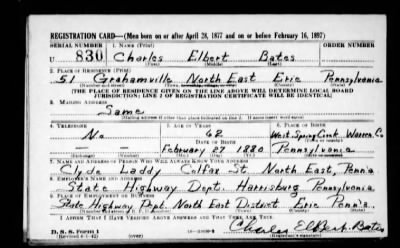 REGISTRATION CARD—(Men born on or after April 28, 1877 and on or before February 16, 1897)
SERIAL NUMBER 1. NAME (Print) ORDER NUMBER
U 830 Charles Elbert Bates
2. PLACE OF RESIDENCE (Print)
51 Grahamville North East Erie Pennsylvania
[THE PLACE OF RESIDENCE GIVEN ON THE LINE ABOVE WILL DETERMINE LOCAL BOARD
JURISDICTION; LINE 2 OF REGISTRATION CERTIFICATE WILL BE IDENTICAL]
3. MAILING ADDRESS
Same
[Mailing address if other than place indicated on line 2. If same insert word same]
4. TELEPHONE 5. AGE IN YEARS 6. PLACE OF BIRTH
No 62 Warren Co.
DATE OF BIRTH
February 27 1880 Pennsylvania
7. NAME AND ADDRESS OF PERSON WHO WILL ALWAYS KNOW YOUR ADDRESS
Clyde Laddy Colfax St. North East, Penn'a
8. EMPLOYER'S NAME AND ADDRESS
State Highway Dept. Harrisburg Pennsylvania
9. PLACE OF EMPLOYMENT OR BUSINESS
State Highway Dept. North East District Erie Penn'a.
I AFFIRM THAT I HAVE VERIFIED ABOVE ANSWERS AND THAT THEY ARE TRUE.
D. S. S. Form 1
(Revised 4-1-42) (over) Charles Elbert Bates